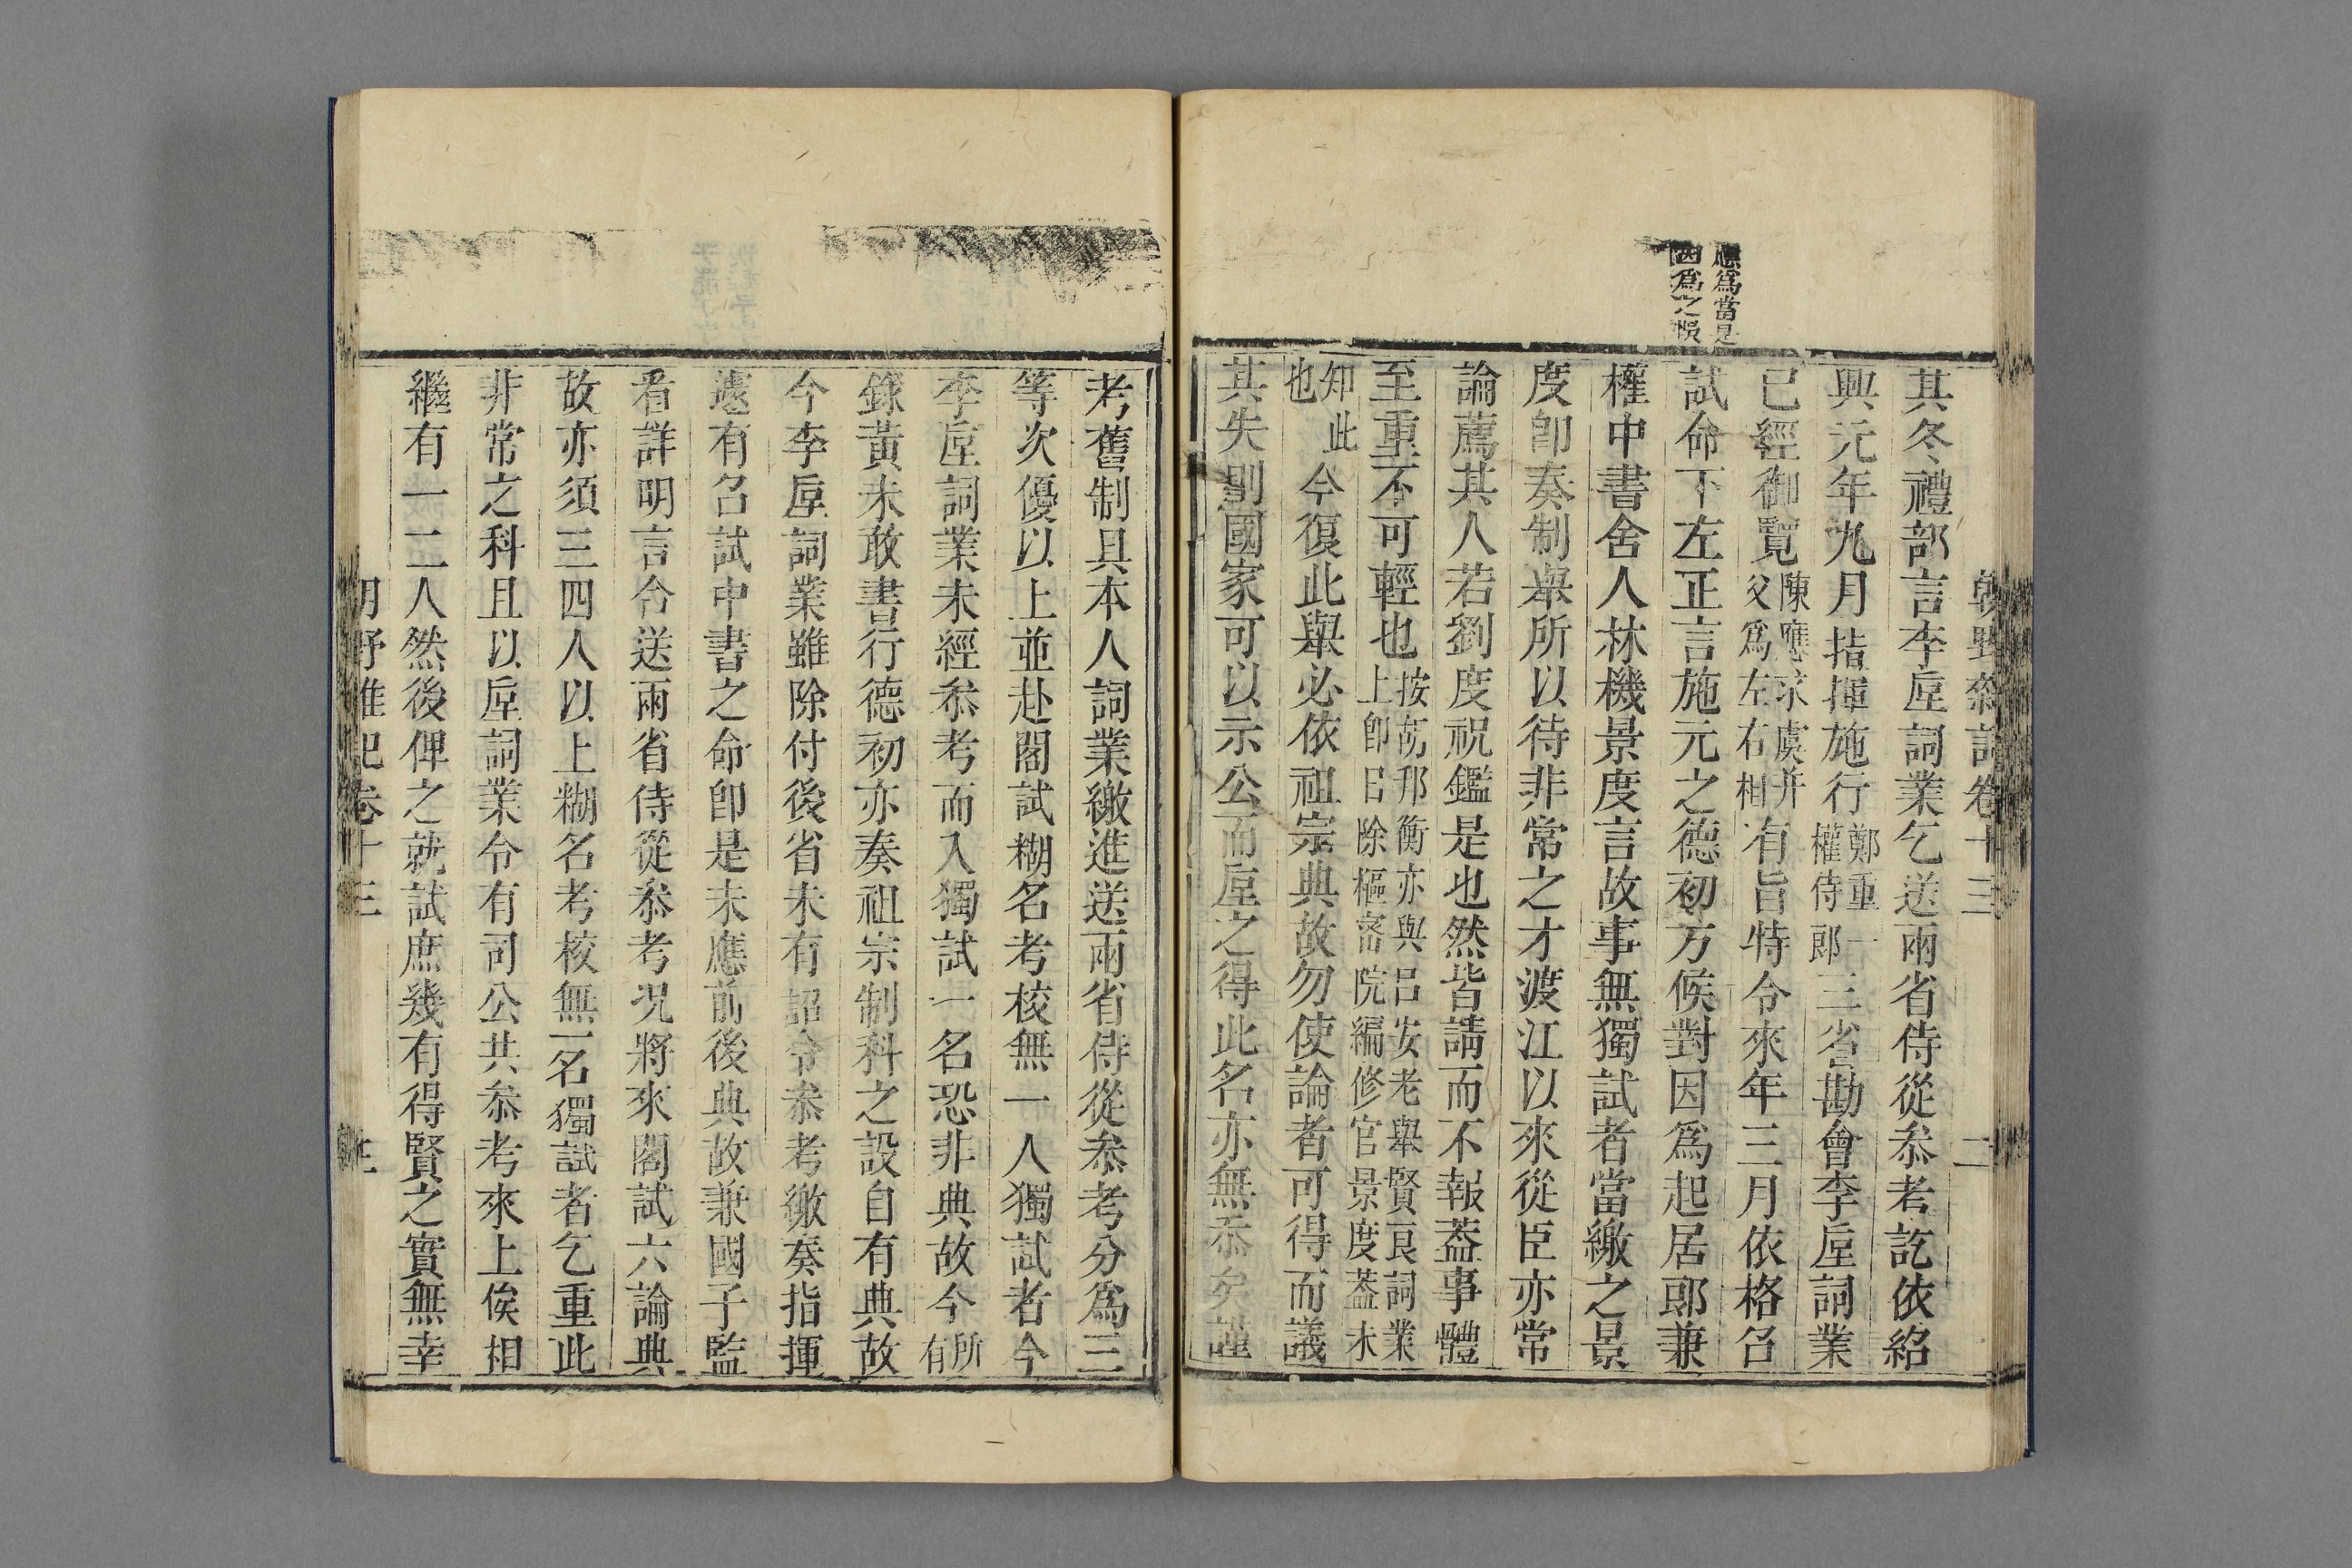 朝野雜記卷十三
二
其冬禮部言李垕詞業乞送兩省侍從叅考訖依紹
興元年九月指揮施行鄭重一權侍郎三省勘會李垕詞業
已經御覽陳應求虞并父爲左右相有旨特令來年三月依格召
應爲當是
因爲之悞
試命下左正言施元之德初方候對因爲起居郎兼
權中書舍人林機景度言故事無獨試者當繳之景
度卽奏制舉所以待非常之才渡江以來從臣亦常
論薦其人若劉度祝鑑是也然皆請而不報蓋事體
至重不可輕也按苏邦衡亦與呂安老舉賢良詞業上卽日除樞密院編修官景度蓋未
知此也今復此舉必依祖宗典故勿使論者可得而議
其失則國家可以示公而垕之得此名亦無忝矣謹
考舊制具本人詞業繳進送兩省侍從叅考分爲三
等次優以上並赴閣試糊名考校無一人獨試者今
李垕詞業未經叅考而入獨試一名恐非典故今所有
錄黃未敢書行德初亦奏祖宗制科之設自有典故
今李垕詞業雖除付後省未有詔令叅考繳奏指揮
遽有召試中書之命卽是未應前後典故兼國子監
看詳明言令送兩省侍從叅考况將來閣試六論典
故亦須三四人以上糊名考校無一名獨試者乞重此
非常之科且以垕詞業令有司公共叅考來上俟相
繼有一二人然後俾之就試庶幾有得賢之實無幸
卷十三